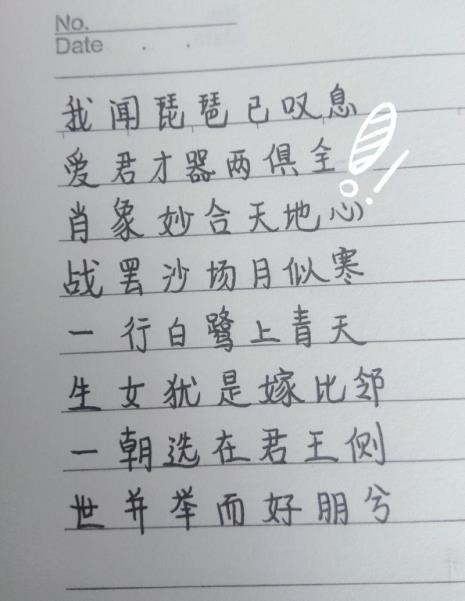 No.
Date
我闻琵琶已叹息
爱君才器两俱全
肖象妙合天地心
战罢沙场月似寒
一行白鹭上青天
生女犹是嫁比邻
一朝选在君王侧
世并举而好朋兮